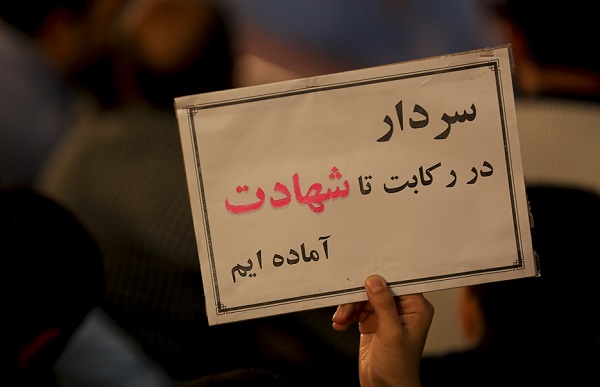 سردار
در رکابت تا شهادت
آماده ایم